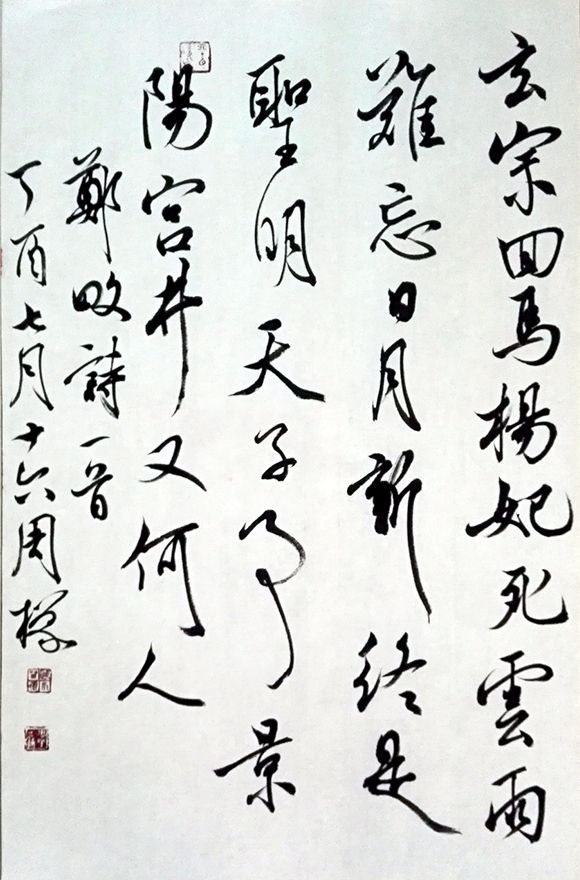 玄宗回馬楊妃死雲雨
難忘日月新終是
聖明天子事景
陽宮井又何人
鄭畋詩一首
丁酉七月十六周